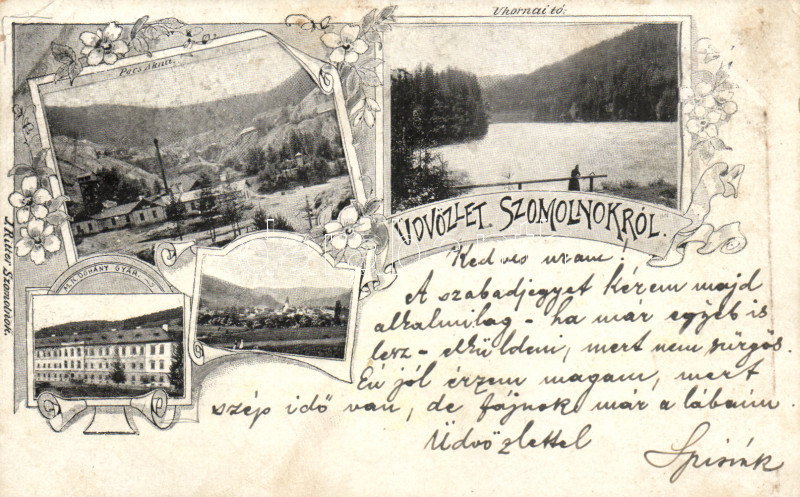 Uhornai tó:
Pécs akna.
ÜDVÖZLET SZOMOLNOKRÓL.
M. K. DOHÁNY GYÁR.
J. Ritter Szomolnok.
Kedves uram!
A szabadjegyet kérem majd
alkalmilag - ha már egyéb is
lesz - elküldeni, mert nem sürgős.
Én jól érzem magam, mert
szép idő van, de fájnak már a lábaim.
Üdvözlettel